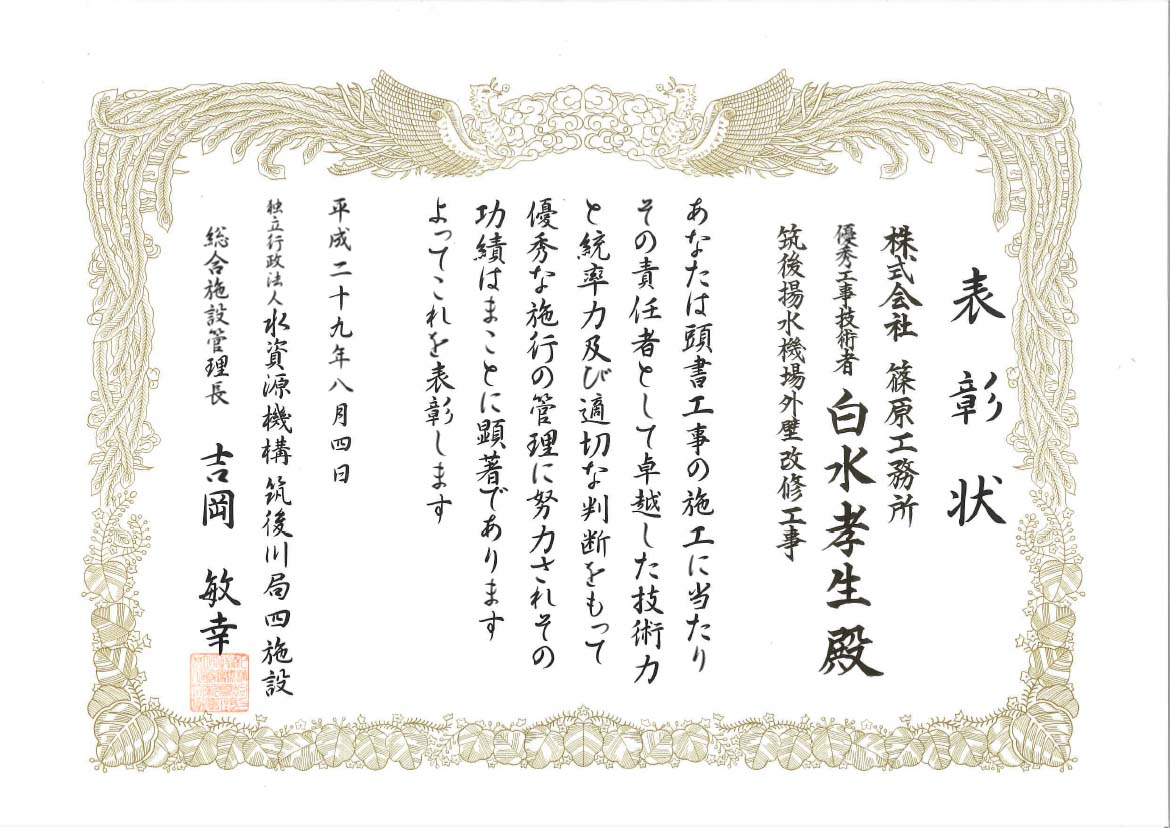 表彰状
株式会社 篠原工務所
優秀工事技術者 白水孝生殿
筑後揚水機場外壁改修工事
あなたは頭書工事の施工に当たり
その責任者として卓越した技術力
と統率力及び適切な判断をもって
優秀な施行の管理に努力されその
功績はまことに顕著であります
よってこれを表彰します
平成二十九年八月四日
独立行政法人水資源機構 筑後川局四施設
総合施設管理長 吉岡 敏幸